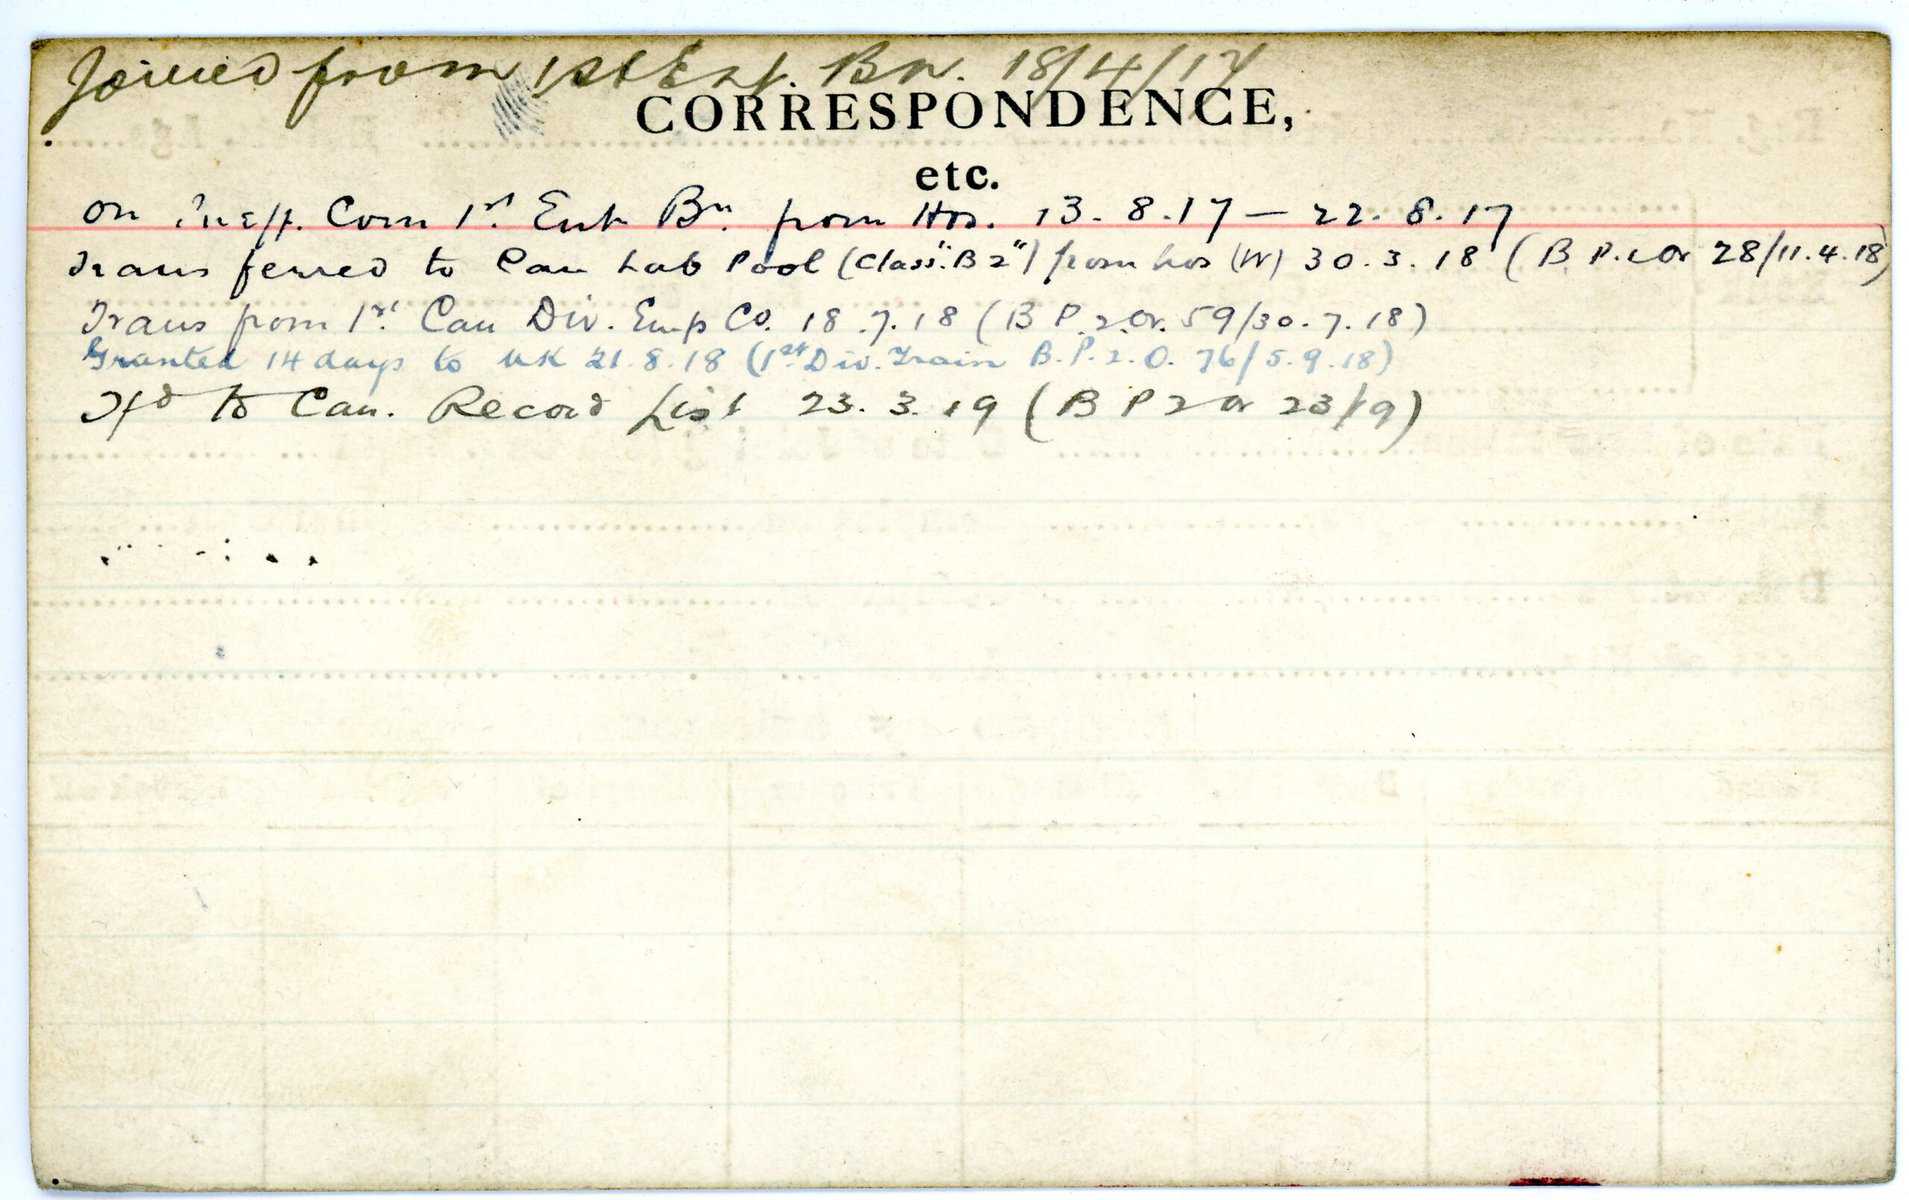 Joined from 1st Ent. Bn. 18/4/17
CORRESPONDENCE,
etc.
on Ineff. Com 1st Ent Bn. from Hos. 13.8.17 — 22.8.17
Transferred to Can Lab Pool (Class "B2") from hos (W) 30.3.18 (B P.2 Or 28/11.4.18)
Trans from 1st Can Div. Emp Co. 18.7.18 (B P.2.Or. 59/30.7.18)
Granted 14 days to UK 21.8.18 (1st Div. Train B.P.2.O. 76/5.9.18)
Tfd to Can. Record List 23.3.19 (B P 2 Or 23/19)